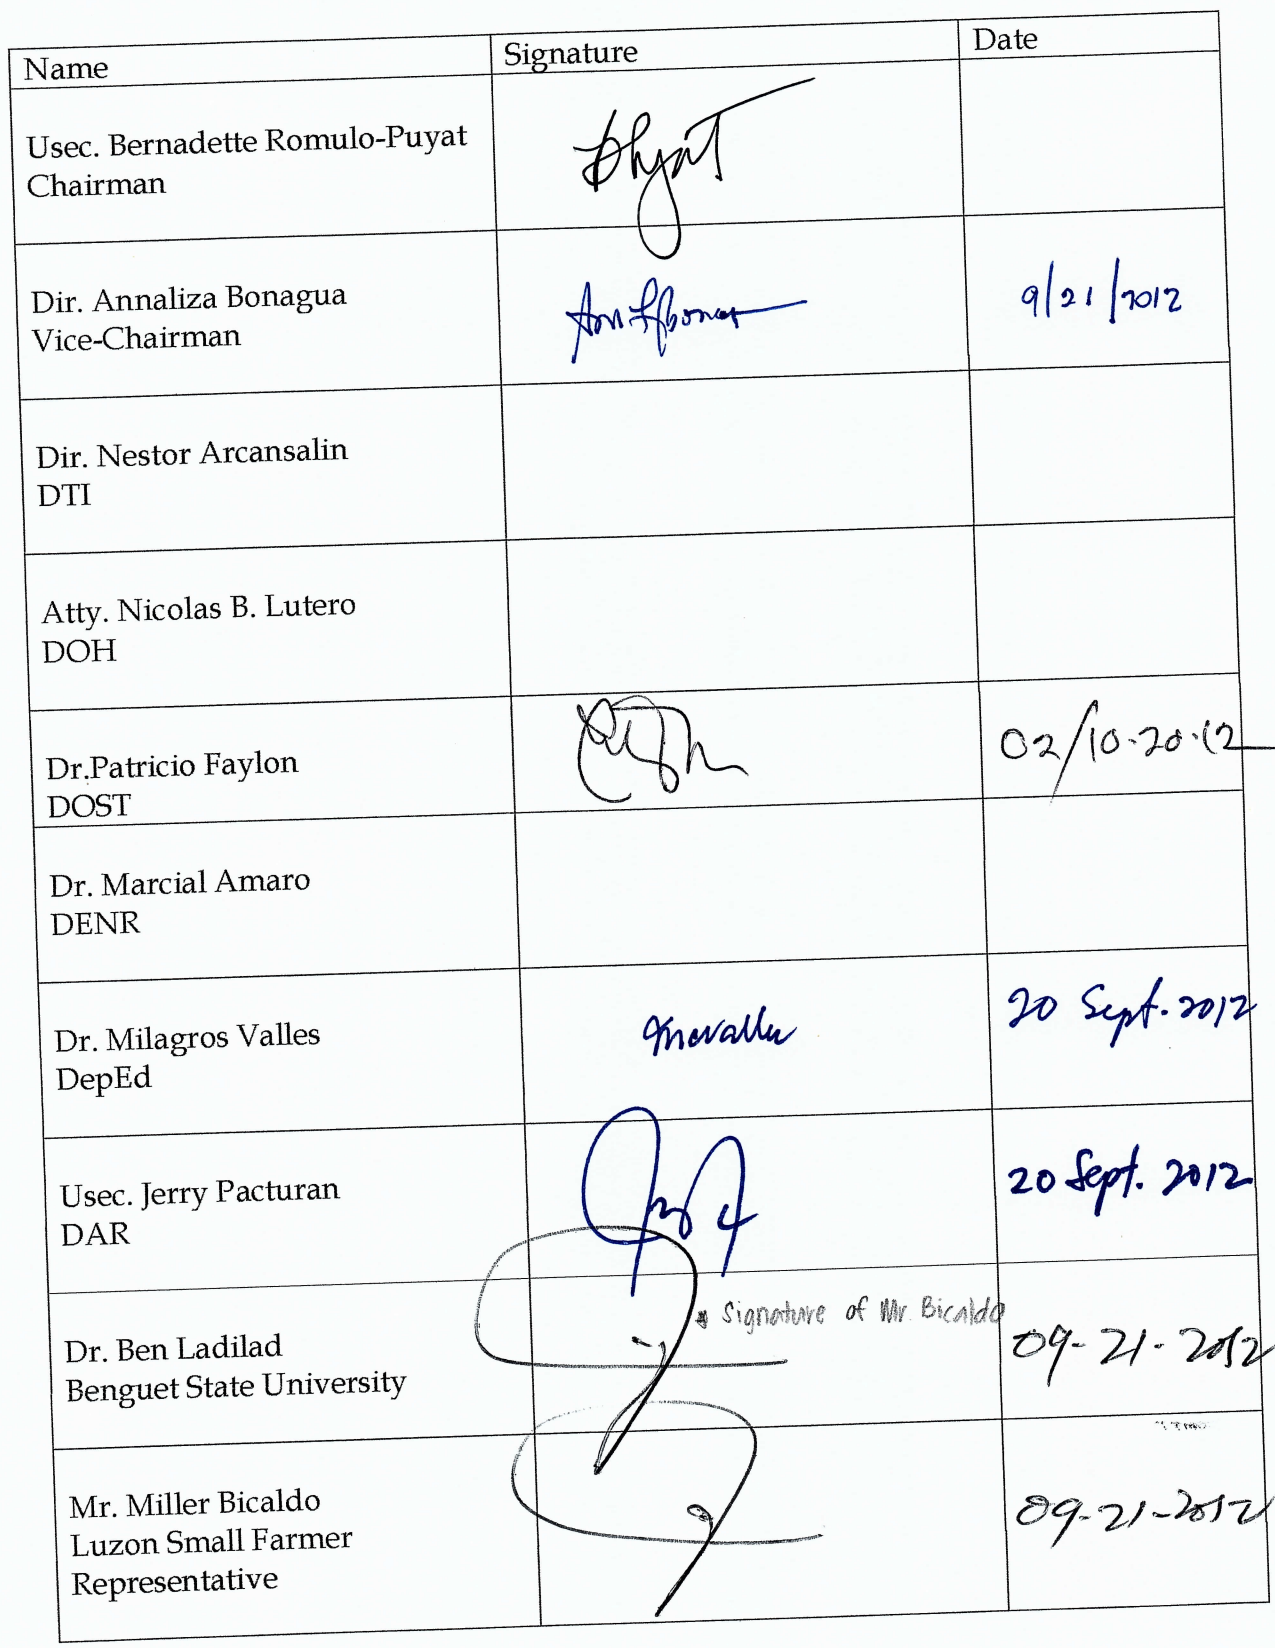 Name Signature Date
Usec. Bernadette Romulo-Puyat
Chairman
Dir. Annaliza Bonagua
Vice-Chairman
9/21/2012
Dir. Nestor Arcansalin
DTI
Atty. Nicolas B. Lutero
DOH
Dr.Patricio Faylon
DOST
02/10-20-12
Dr. Marcial Amaro
DENR
Dr. Milagros Valles
DepEd
20 Sept. 2012
Usec. Jerry Pacturan
DAR
20 Sept. 2012
Signature of Mr. Bicaldo
Dr. Ben Ladilad
Benguet State University
09-21-2012
Mr. Miller Bicaldo
Luzon Small Farmer
Representative
09-21-2012